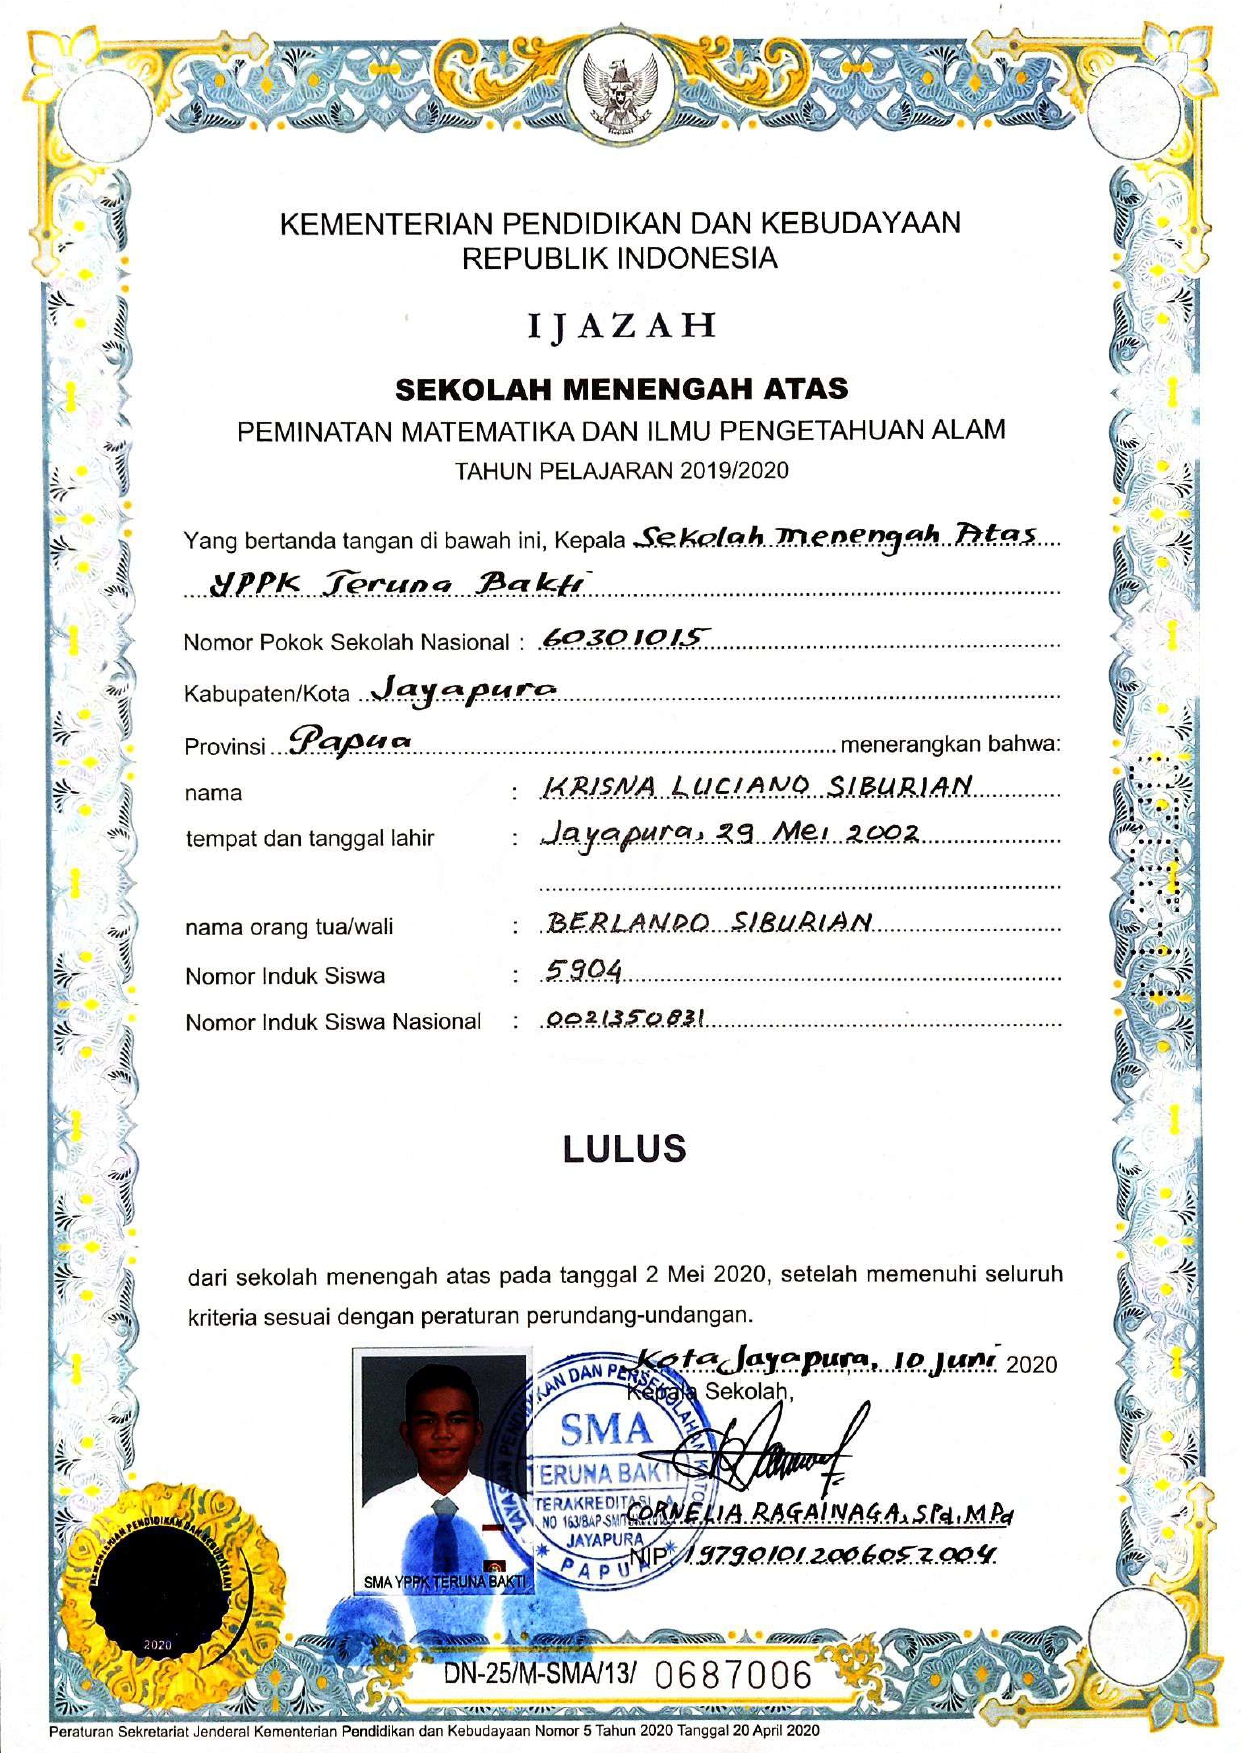 KEMENTERIAN PENDIDIKAN DAN KEBUDAYAAN
REPUBLIK INDONESIA
IJAZAH
SEKOLAH MENENGAH ATAS
PEMINATAN MATEMATIKA DAN ILMU PENGETAHUAN ALAM
TAHUN PELAJARAN 2019/2020
Yang bertanda tangan di bawah ini, Kepala Sekolah Menengah Atas
YPPK Teruna Bakti
Nomor Pokok Sekolah Nasional : 60301015
Kabupaten/Kota Jayapura
Provinsi Papua menerangkan bahwa:
nama : KRISNA LUCIANO SIBURIAN
tempat dan tanggal lahir : Jayapura, 29 Mei 2002
nama orang tua/wali : BERLANDO SIBURIAN
Nomor Induk Siswa : 5904
Nomor Induk Siswa Nasional : 0021350831
LULUS
dari sekolah menengah atas pada tanggal 2 Mei 2020, setelah memenuhi seluruh
kriteria sesuai dengan peraturan perundang-undangan.
Kota Jayapura, 10 Juni 2020
Kepala Sekolah,
SMA
TERUNA BAKTI
TERAKREDITASI
JAYAPURA
PAPUA
CORNELIA RAGAINAGA, S.Pd, M.Pd
NIP 197901012006052004
SMA YPPK TERUNA BAKTI
2020
DN-25/M-SMA/13/ 0687006
Peraturan Sekretariat Jenderal Kementerian Pendidikan dan Kebudayaan Nomor 5 Tahun 2020 Tanggal 20 April 2020